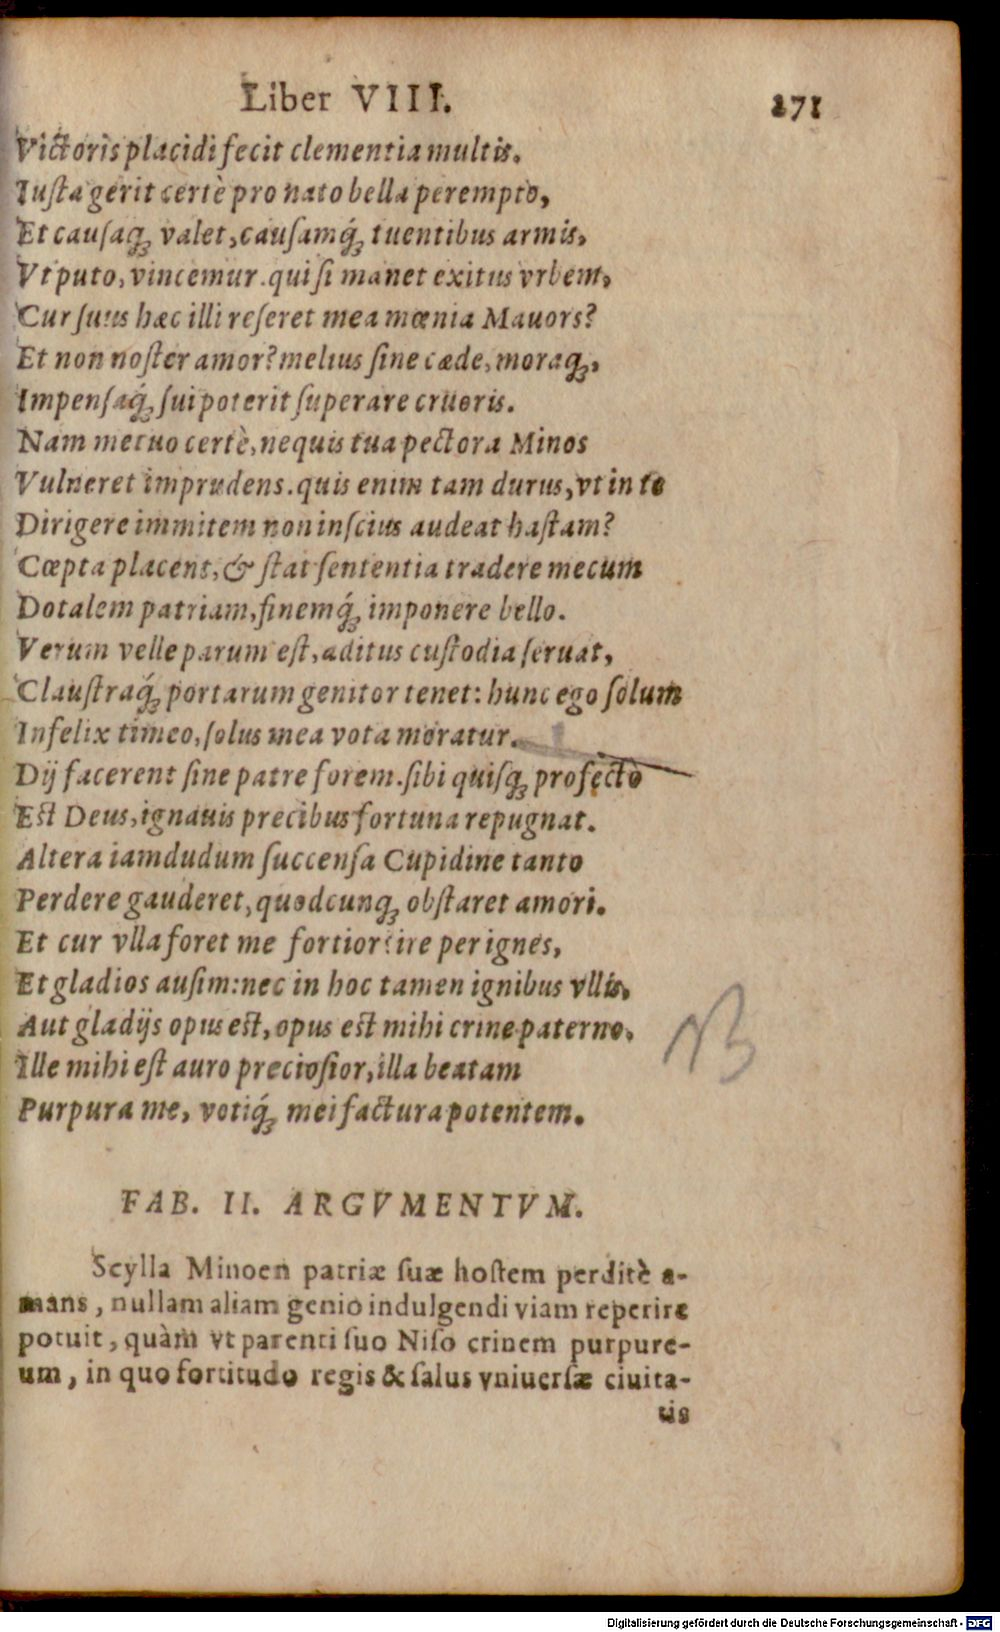 Liber VIII. 271
Victoris placidi fecit clementia multis.
Iusta gerit certè pro nato bella perempto,
Et causaq́ꝫ valet, causamq́ꝫ tuentibus armis,
Vt puto, vincemur. qui si manet exitus vrbem,
Cur suus hæc illi reseret mea mœnia Mauors?
Et non noster amor? melius sine cæde, moraqꝫ,
Impensaq́ꝫ sui poterit superare cruoris.
Nam metuo certè, nequis tua pectora Minos
Vulneret imprudens. quis enim tam durus, vt in te
Dirigere immitem non inscius audeat hastam?
Cœpta placent, & stat sententia tradere mecum
Dotalem patriam, finemq́ꝫ imponere bello.
Verum velle parum est, aditus custodia seruat,
Claustraq́ꝫ portarum genitor tenet: hunc ego solum
Infelix timeo, solus mea vota moratur.
Dij facerent sine patre forem. sibi quisqꝫ profectò
Est Deus, ignauis precibus fortuna repugnat.
Altera iamdudum succensa Cupidine tanto
Perdere gauderet, quodcunqꝫ obstaret amori.
Et cur vlla foret me fortior? ire per ignes,
Et gladios ausim: nec in hoc tamen ignibus vllis,
Aut gladijs opus est, opus est mihi crine paterno.
Ille mihi est auro preciosior, illa beatam
Purpura me, votiq́ꝫ mei factura potentem.
NB
FAB. II. ARGVMENTVM.
Scylla Minoen patriæ suæ hostem perditè a-
mans, nullam aliam genio indulgendi viam reperire
potuit, quàm vt parenti suo Niso crinem purpure-
um, in quo fortitudo regis & salus vniuersæ ciuita-
tis
Digitalisierung gefördert durch die Deutsche Forschungsgemeinschaft - DFG